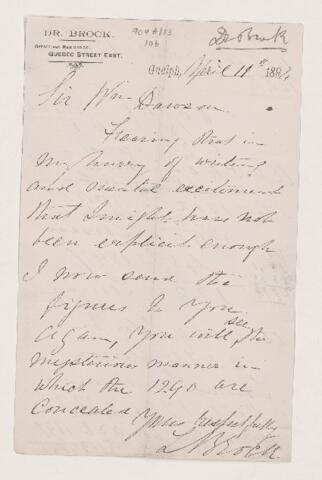 DR. BROCK.
OFFICE AND RESIDENCE,
QUEBEC STREET EAST.
904A/13
10b
Dr Brock
Guelph, April 11th 189
Sir Wm Dawson.
Fearing that in
my hurry of writing
and mental excitement
that I might have not
been explicit enough
I now send the
figures to you
again, you will see the
mysterious manner in
which the 1290 are
concealed
Yours respectfully
L Brock